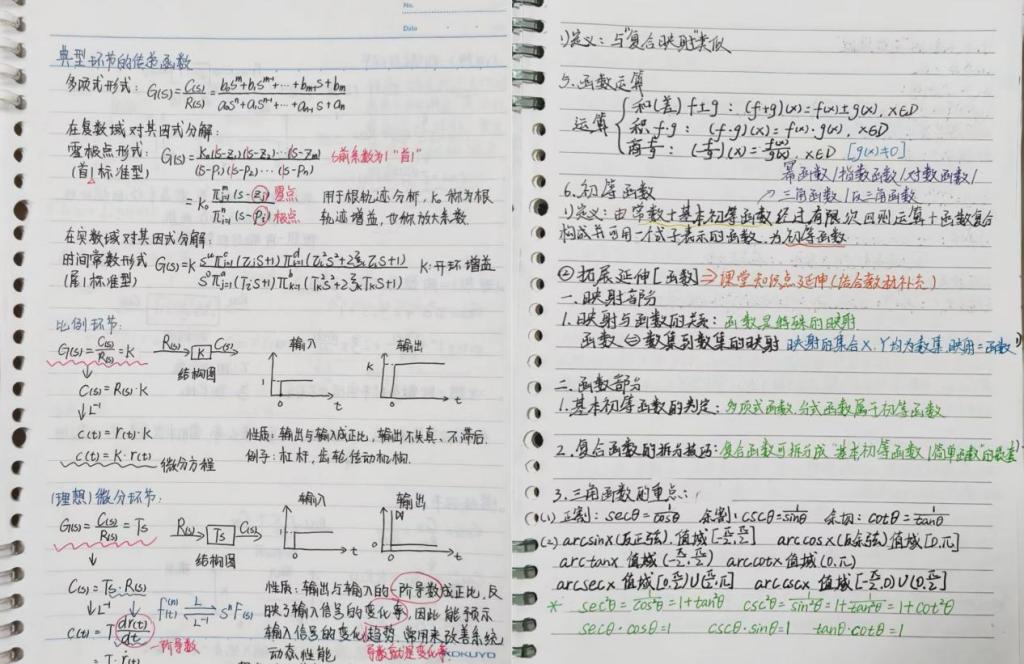 No.
Date
典型环节的传递函数
多项式形式: G(s)=C(s)/R(s)=(b₀sᵐ+b₁sᵐ⁻¹+…+bₘ₋₁s+bₘ)/(a₀sⁿ+a₁sⁿ⁻¹+…+aₙ₋₁s+aₙ)
在复数域对其因式分解:
零极点形式: G(s)=K₀(s-z₁)(s-z₂)…(s-zₘ)/(s-p₁)(s-p₂)…(s-pₙ) s前系数为1 "首1"
(首1标准型)
=K₀ πᵐ(s-zⱼ)/πⁿ(s-pᵢ) 零点 极点 用于根轨迹分析, K₀称为根
轨迹增益, 也称放大系数.
在实数域对其因式分解:
时间常数形式 K:开环增益
(尾1标准型)
比例环节:
G(s)=C(s)/R(s)=K R(s) K C(s) 输入 输出
结构图 1 0 t K 0 t
C(s)=R(s)·K
↓L⁻¹
c(t)=r(t)·K 性质: 输出与输入成正比, 输出不失真、不滞后.
c(t)=K·r(t) 微分方程 例子: 杠杆, 齿轮传动机构.
(理想)微分环节:
G(s)=C(s)/R(s)=Ts R(s) Ts C(s) 输入 输出
结构图 1 0 t 0 t
C(s)=Ts·R(s) 性质: 输出与输入的一阶导数成正比, 反
↓L⁻¹ f⁽ⁿ⁾(t) ⇌ sⁿF(s) L L⁻¹ 映了输入信号的变化率, 因此能预示
c(t)=T dr(t)/dt 输入信号的变化趋势, 常用来改善系统
一阶导数 动态性能 导数就是变化率
=T·ṙ(t)
KOKUYO
1)定义: 与"复合映射"类似
5.函数运算
运算 { 和(差) f±g: (f+g)(x)=f(x)±g(x), x∈D
积 f·g: (f·g)(x)=f(x)·g(x), x∈D
商 f/g: (f/g)(x)=f(x)/g(x), x∈D [g(x)≠0]
幂函数/指数函数/对数函数/
6.初等函数 ↗三角函数/反三角函数
1)定义: 由常数+基本初等函数经过有限次四则运算+函数复合
构成并可用一个式子表示的函数, 为初等函数
②拓展延伸[函数]⇒课堂知识点延伸(结合数教补充)
一.映射部分
1.映射与函数的关系: 函数是特殊的映射
函数⇔数集到数集的映射 映射的集合X、Y均为数集, 映射=函数
二.函数部分
1.基本初等函数的判定: 多项式函数,分式函数属于初等函数
2.复合函数的拆分技巧: 复合函数可拆分成"基本初等函数/简单函数"的
3.三角函数的重点:
(1) 正割: secθ=1/cosθ 余割: cscθ=1/sinθ 余切: cotθ=1/tanθ
(2) arcsinx(反正弦), 值域[-π/2,π/2] arccosx(反余弦)值域[0,π]
arctanx 值域(-π/2,π/2) arccotx 值域(0,π)
arcsecx 值域[0,π/2)∪(π/2,π] arccscx 值域[-π/2,0)∪(0,π/2]
* sec²θ=1/cos²θ=1+tan²θ csc²θ=1/sin²θ=1+1/tan²θ=1+cot²θ
secθ·cosθ=1 cscθ·sinθ=1 tanθ·cotθ=1